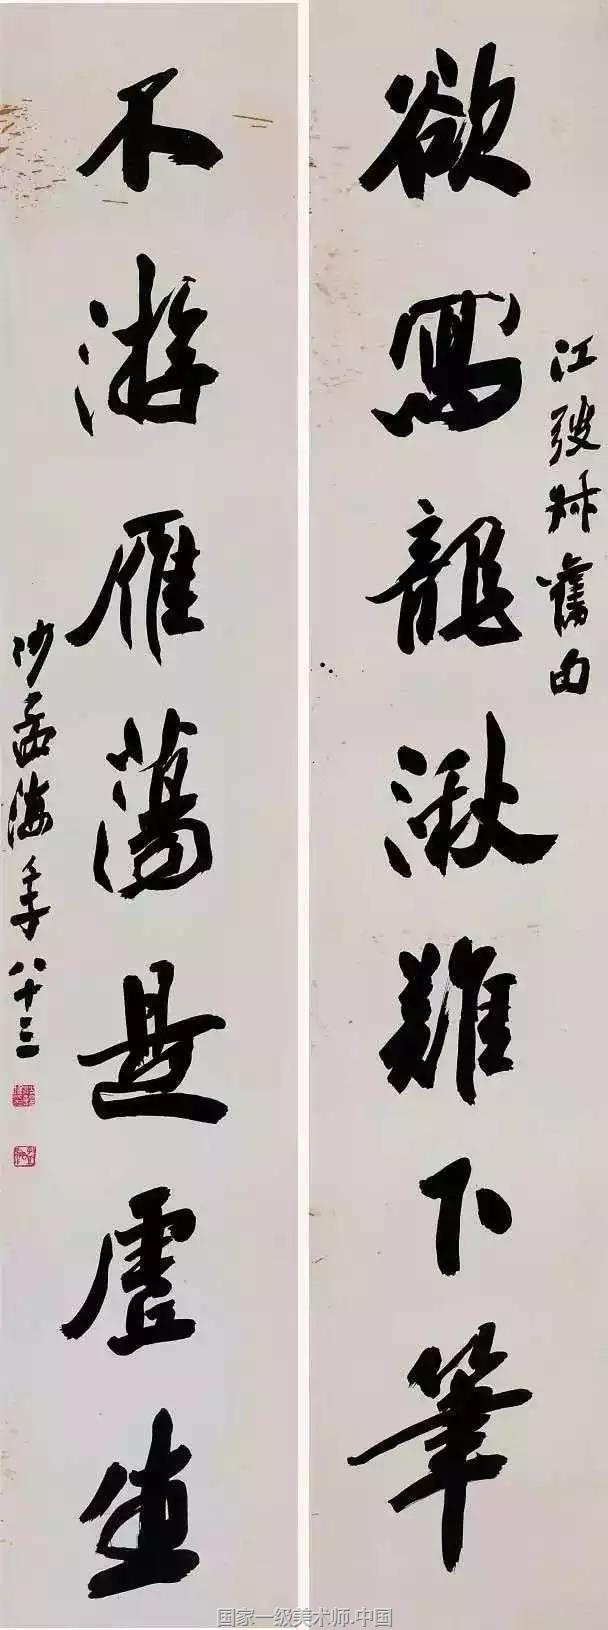 欲寫龍湫難下筆
江弢叔舊句
不游雁蕩是虛生
沙孟海年八十三
国家一级美术师.中国